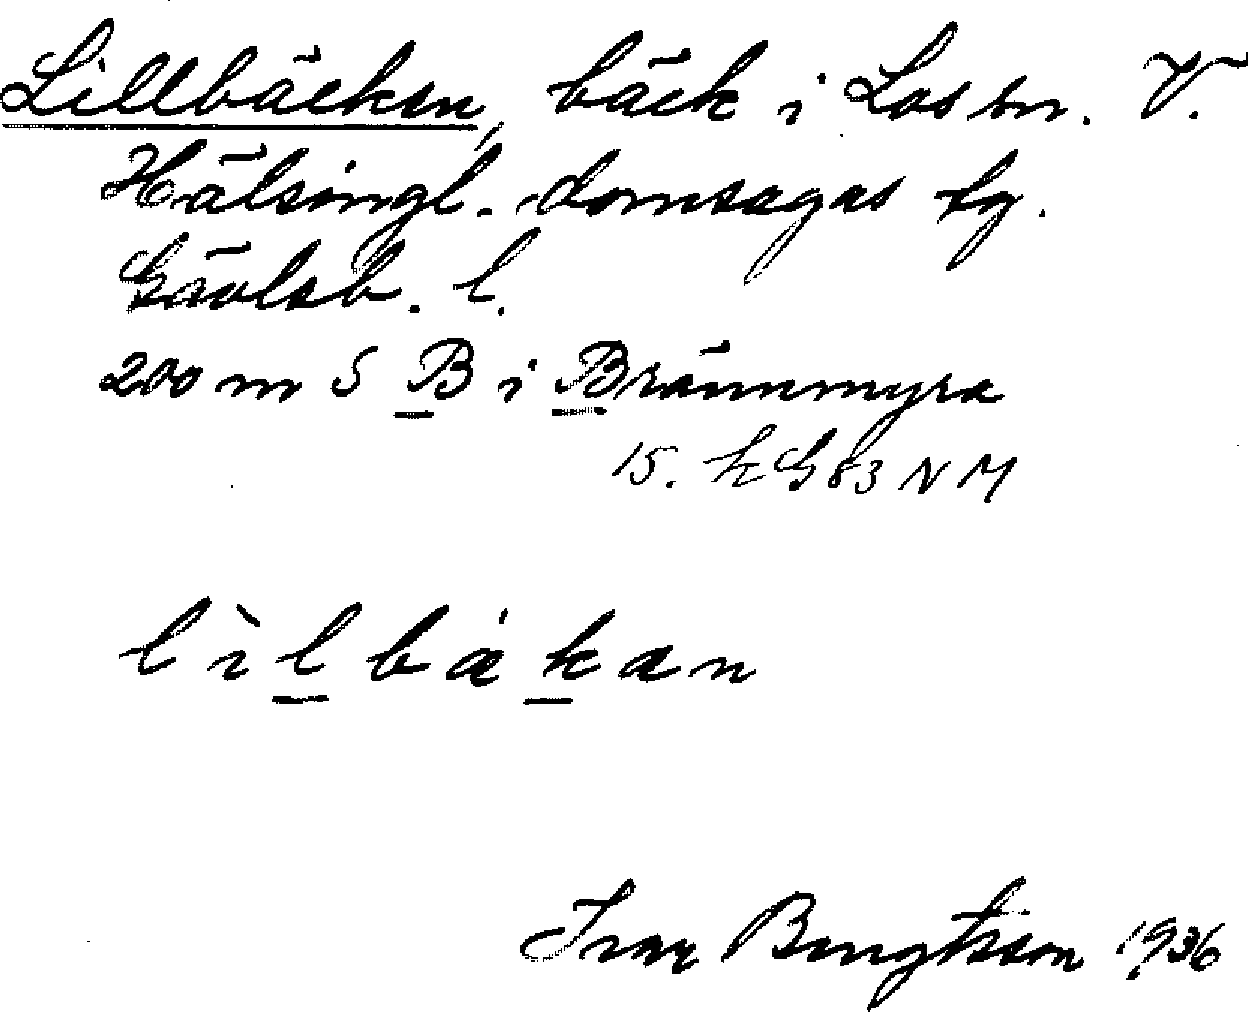 Lillbäcken, bäck i Los sn. V.
Hälsingl. domsagas tg.
Gävleb. l.
200 m S B i Brännmyra
15. k G 83 NM
lìlbákan
Ivar Bengtsson 1936